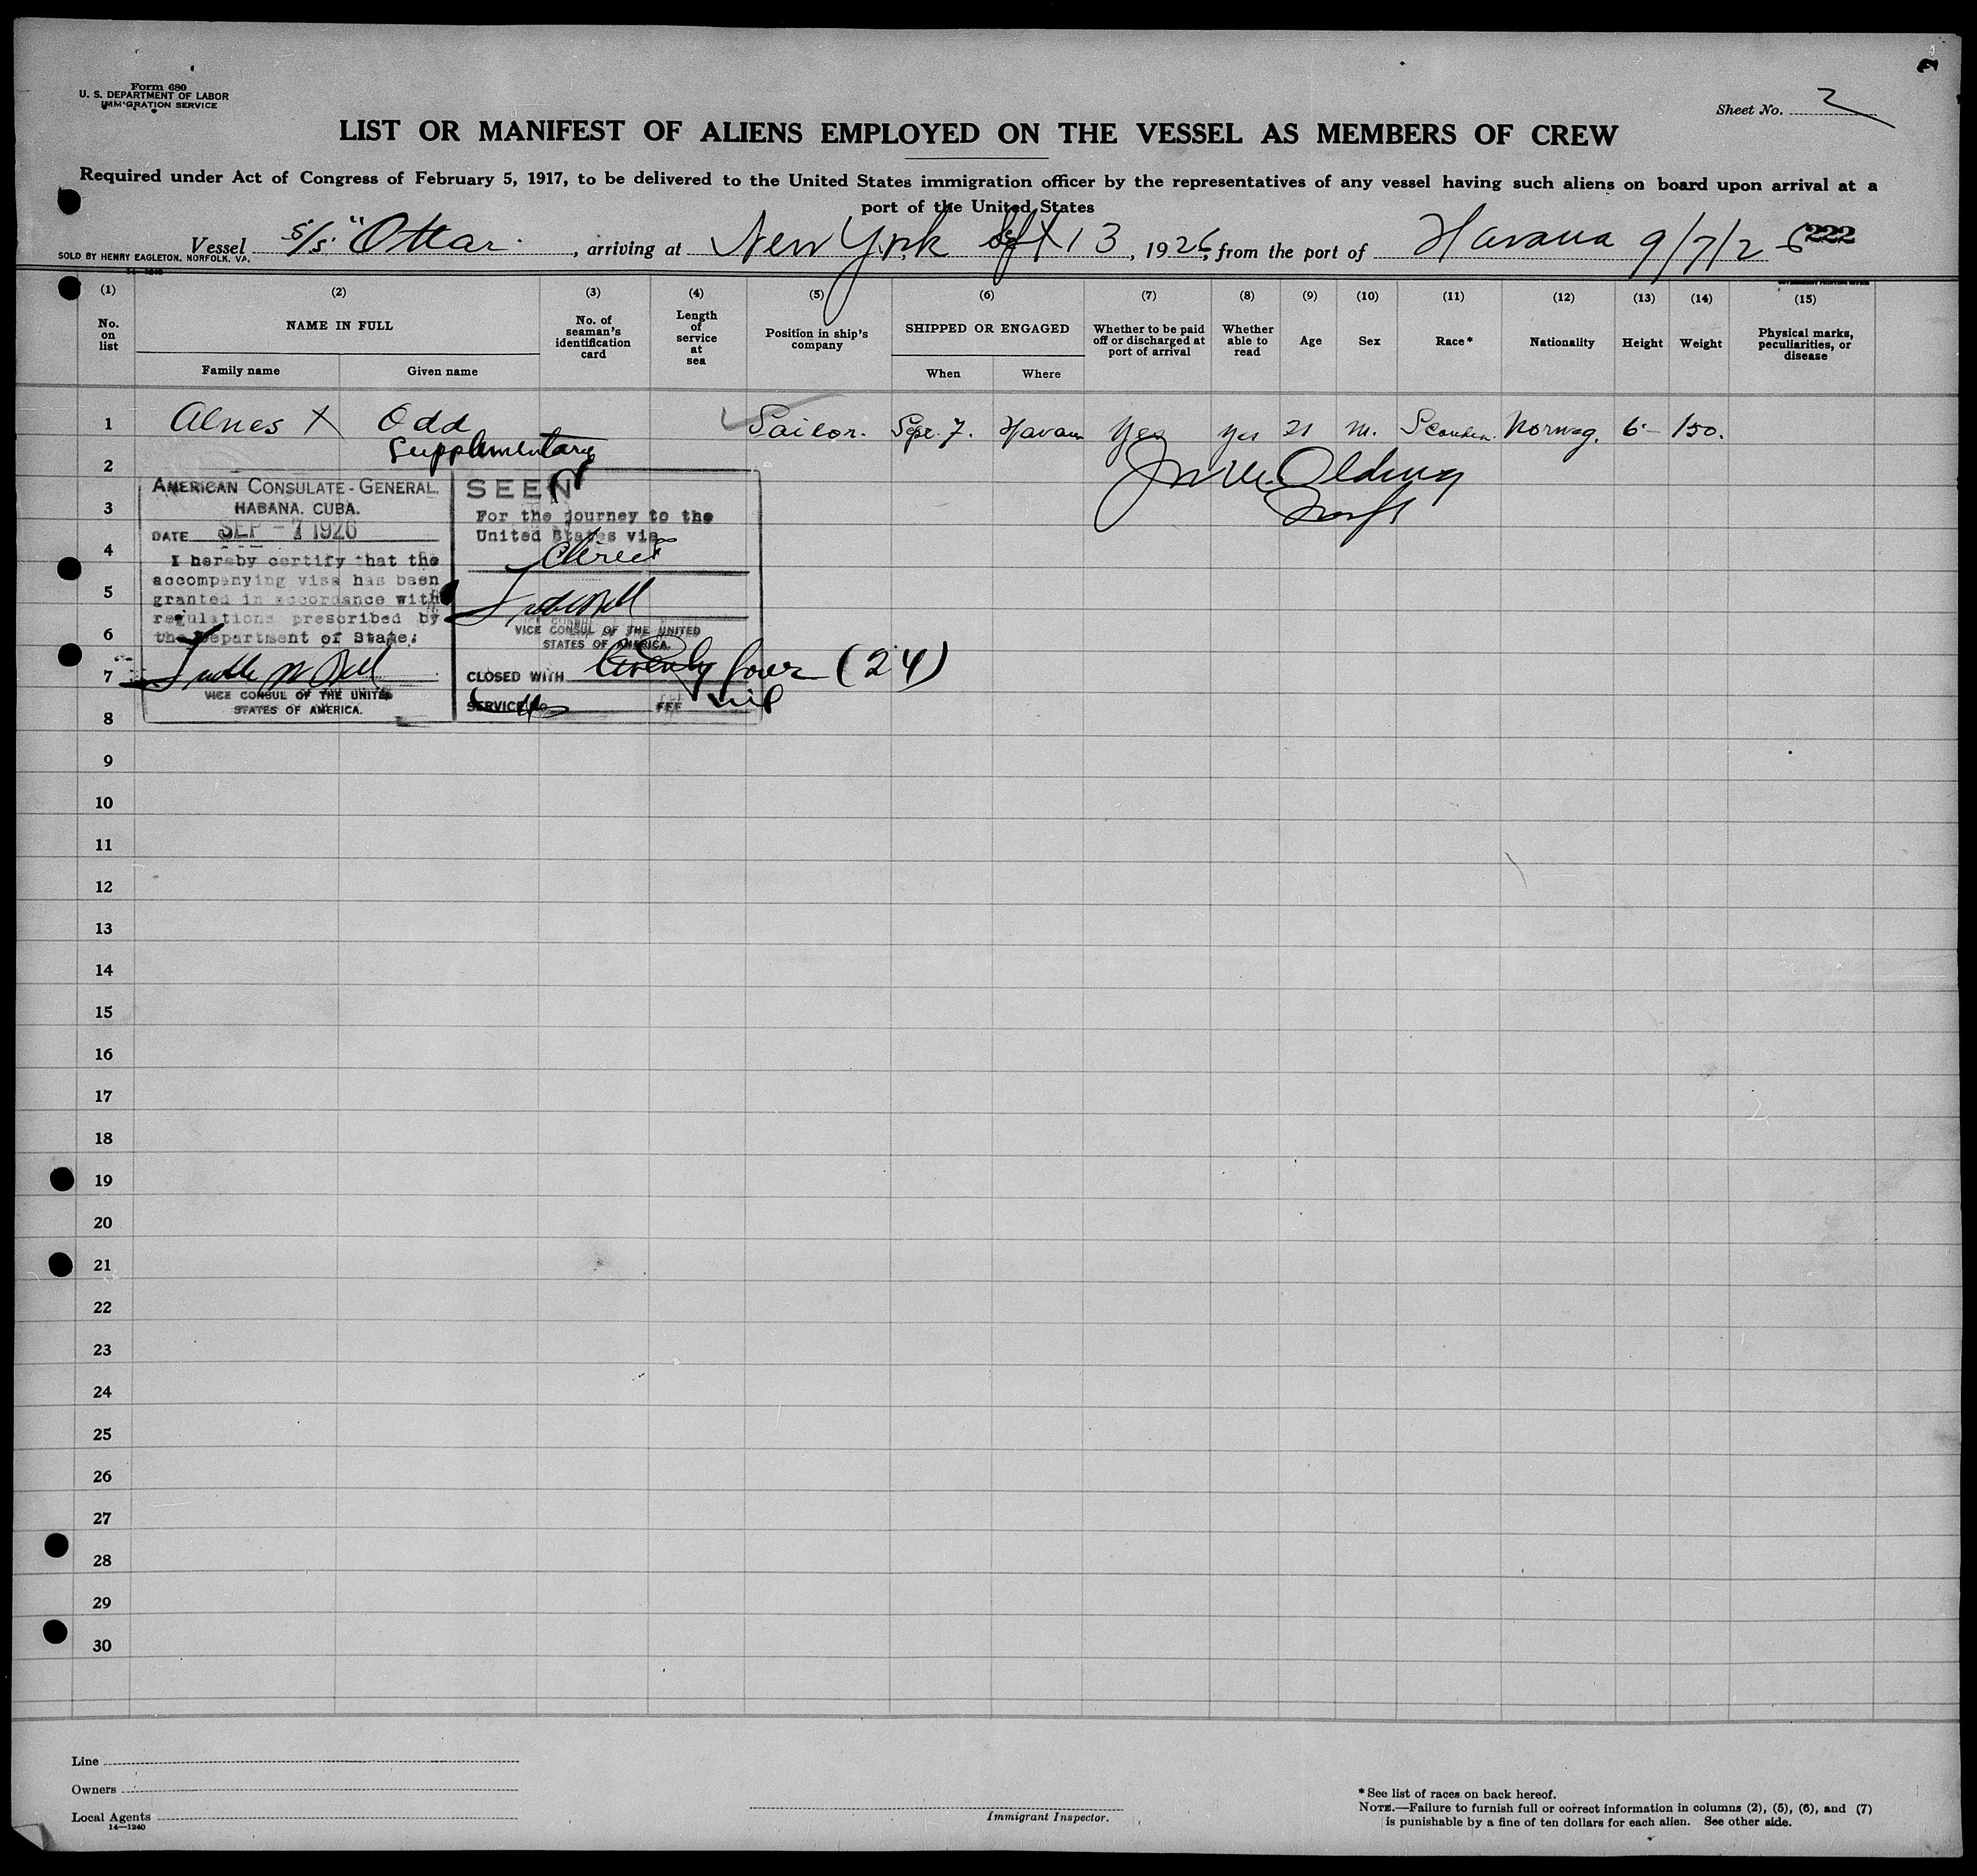 Form 680
U. S. DEPARTMENT OF LABOR
IMMIGRATION SERVICE
Sheet No. 2
LIST OR MANIFEST OF ALIENS EMPLOYED ON THE VESSEL AS MEMBERS OF CREW
Required under Act of Congress of February 5, 1917, to be delivered to the United States immigration officer by the representatives of any vessel having such aliens on board upon arrival at a
port of the United States
Vessel S/S. "Ottar. , arriving at New York Sept 13, 1926, from the port of Havana 9/7/26 222
SOLD BY HENRY EAGLETON, NORFOLK, VA.
(1) (2) (3) (4) (5) (6) (7) (8) (9) (10) (11) (12) (13) (14) (15)
No. on list
NAME IN FULL
Family name
Given name
No. of seaman's identification card
Length of service at sea
Position in ship's company
SHIPPED OR ENGAGED
When
Where
Whether to be paid off or discharged at port of arrival
Whether able to read
Age
Sex
Race*
Nationality
Height
Weight
Physical marks, peculiarities, or disease
1 Alnes X Odd Sailor. Sept. 7. Havana Yes yes 21 m. Scandin. Norweg. 6- 150.
Supplimentary
2
3
4
5
6
7
8
AMERICAN CONSULATE-GENERAL.
HABANA. CUBA.
DATE SEP - 7 1926
I hereby certify that the
accompanying visa has been
granted in accordance with
regulations prescribed by
the Department of State.
VICE CONSUL OF THE UNITED
STATES OF AMERICA.
SEEN
For the journey to the
United States via
direct
VICE CONSUL OF THE UNITED
STATES OF AMERICA.
CLOSED WITH twenty four (24)
SERVICE No. FEE nil
9
10
11
12
13
14
15
16
17
18
19
20
21
22
23
24
25
26
27
28
29
30
Line
Owners
Local Agents
14—1240
Immigrant Inspector.
* See list of races on back hereof.
NOTE.—Failure to furnish full or correct information in columns (2), (5), (6), and (7)
is punishable by a fine of ten dollars for each alien. See other side.